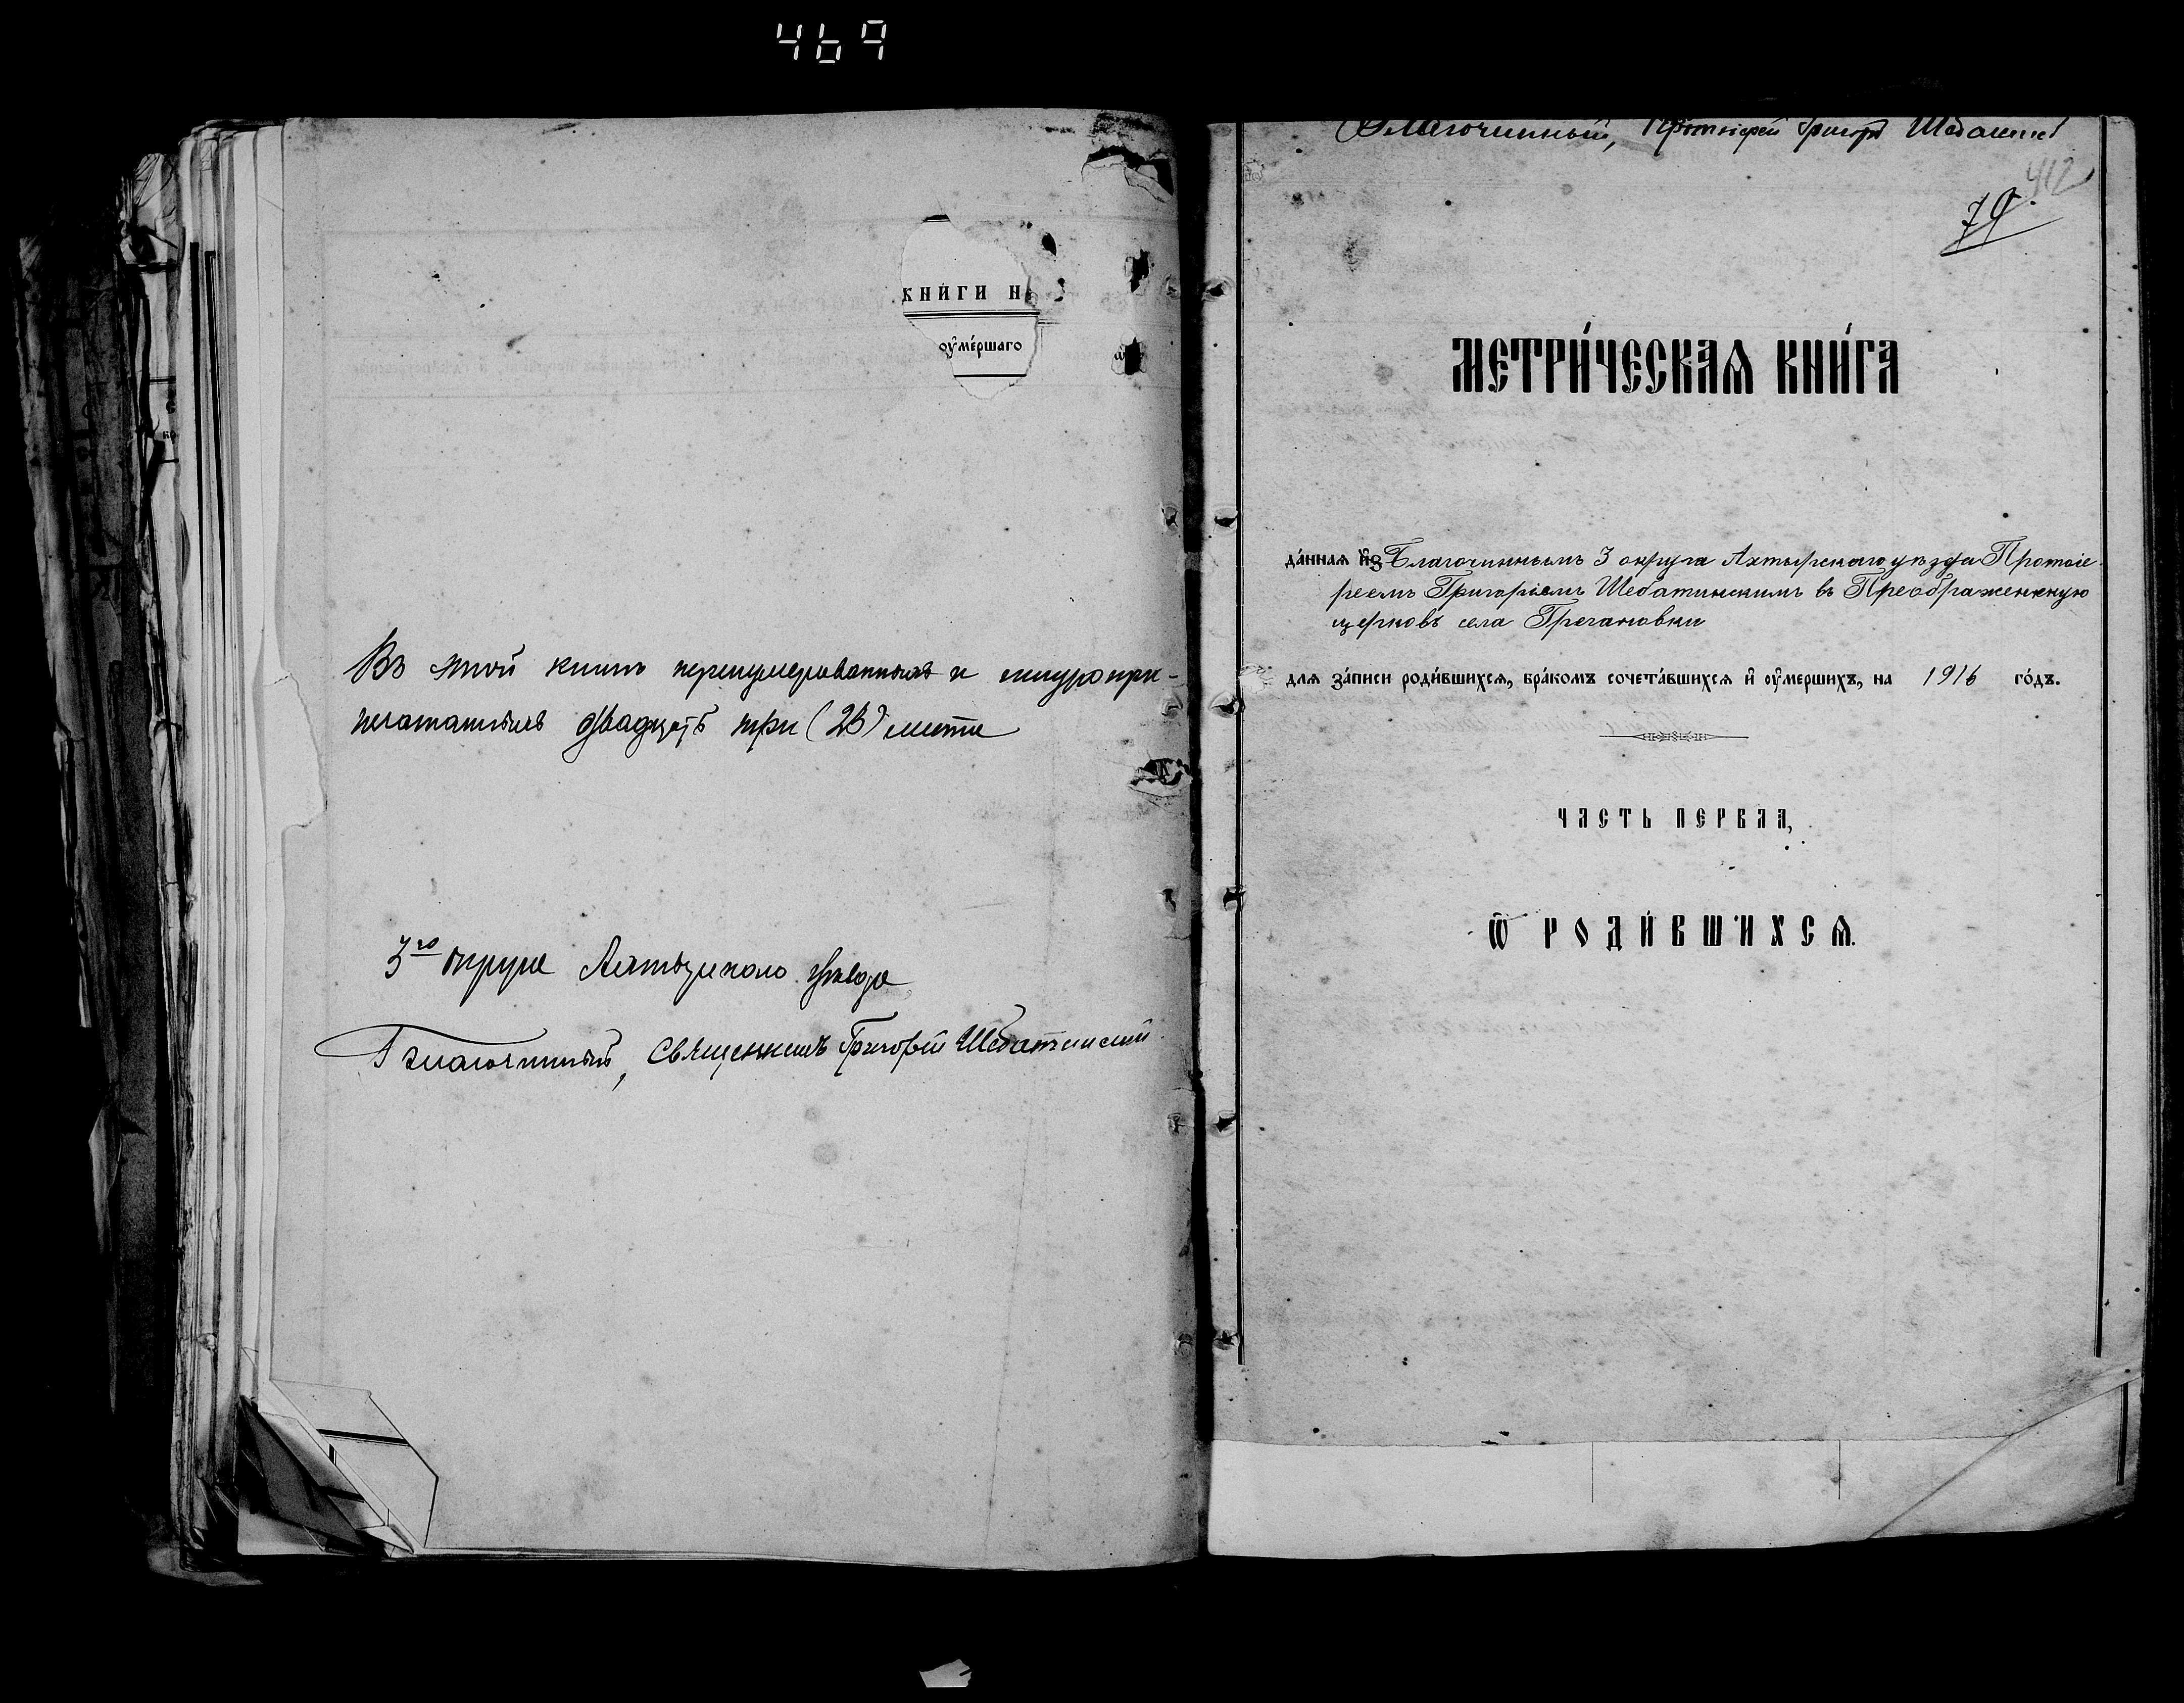 469
КНИ́ГИ Н
оу҆ме́ршаго
Въ этой книгѣ перенумерованныхъ и шнуропри-
печатанныхъ двадцать три (23) листа
3го округа Ахтырскаго уѣзда
Благочинный, Священникъ Григорій Шебатинскій
Благочинный, Протоіерей Григорій
412
79.
МЕТРИ́ЧЕСКАѦ КНИ́ГА
да́ннаѧ и҆з̾ Благочиннымъ 3 округа Ахтырскаго уѣзда Протоіе-
реемъ Григоріемъ Шебатинскимъ въ Преображенскую
церковь села Грегановки
длѧ за́писи роди́вшихсѧ, бра́комъ сочета́вшихсѧ и҆ оу҆ме́ршихъ, на 1916 го́дъ.
ЧАСТЬ ПЕРВАѦ,
Ѽ РОДИ́ВШИХСѦ.